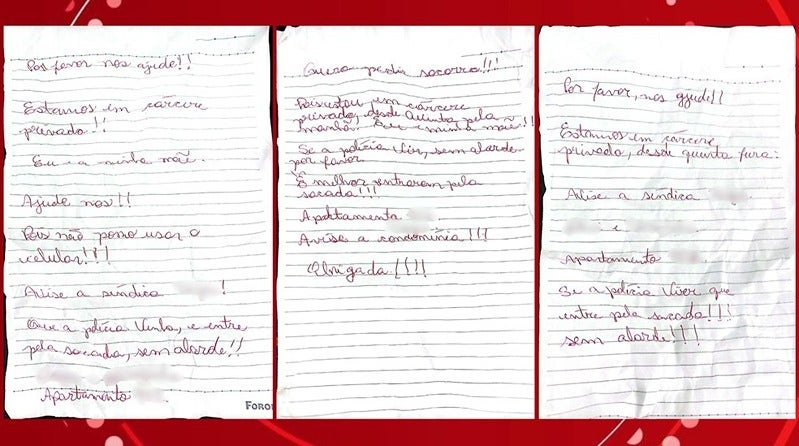 Por favor nos ajude!!
Estamos em cárcere
privado!!
Eu e a minha mãe.
Ajude nos!!
Pois não posso usar o
celular!!!
Avise a síndica !
Que a polícia venha, e entre
pela sacada, sem alarde!!
Apartamento
FORO
Quero pedir socorro!!!
Pois estou em cárcere
privado, desde Quinta pela
manhã. Eu e minha mãe!!
Se a polícia vier, sem alarde
por favor.
É melhor entrarem pela
sacada!!!
Apartamento
Avise a condomínia!!!
Obrigada!!!!
Por favor, nos ajude!!
Estamos em cárcere
privado, desde quinta feira:
Avise a síndica
e
Apartamento
Se a polícia vier que
entre pela sacada!!!
sem alarde!!!